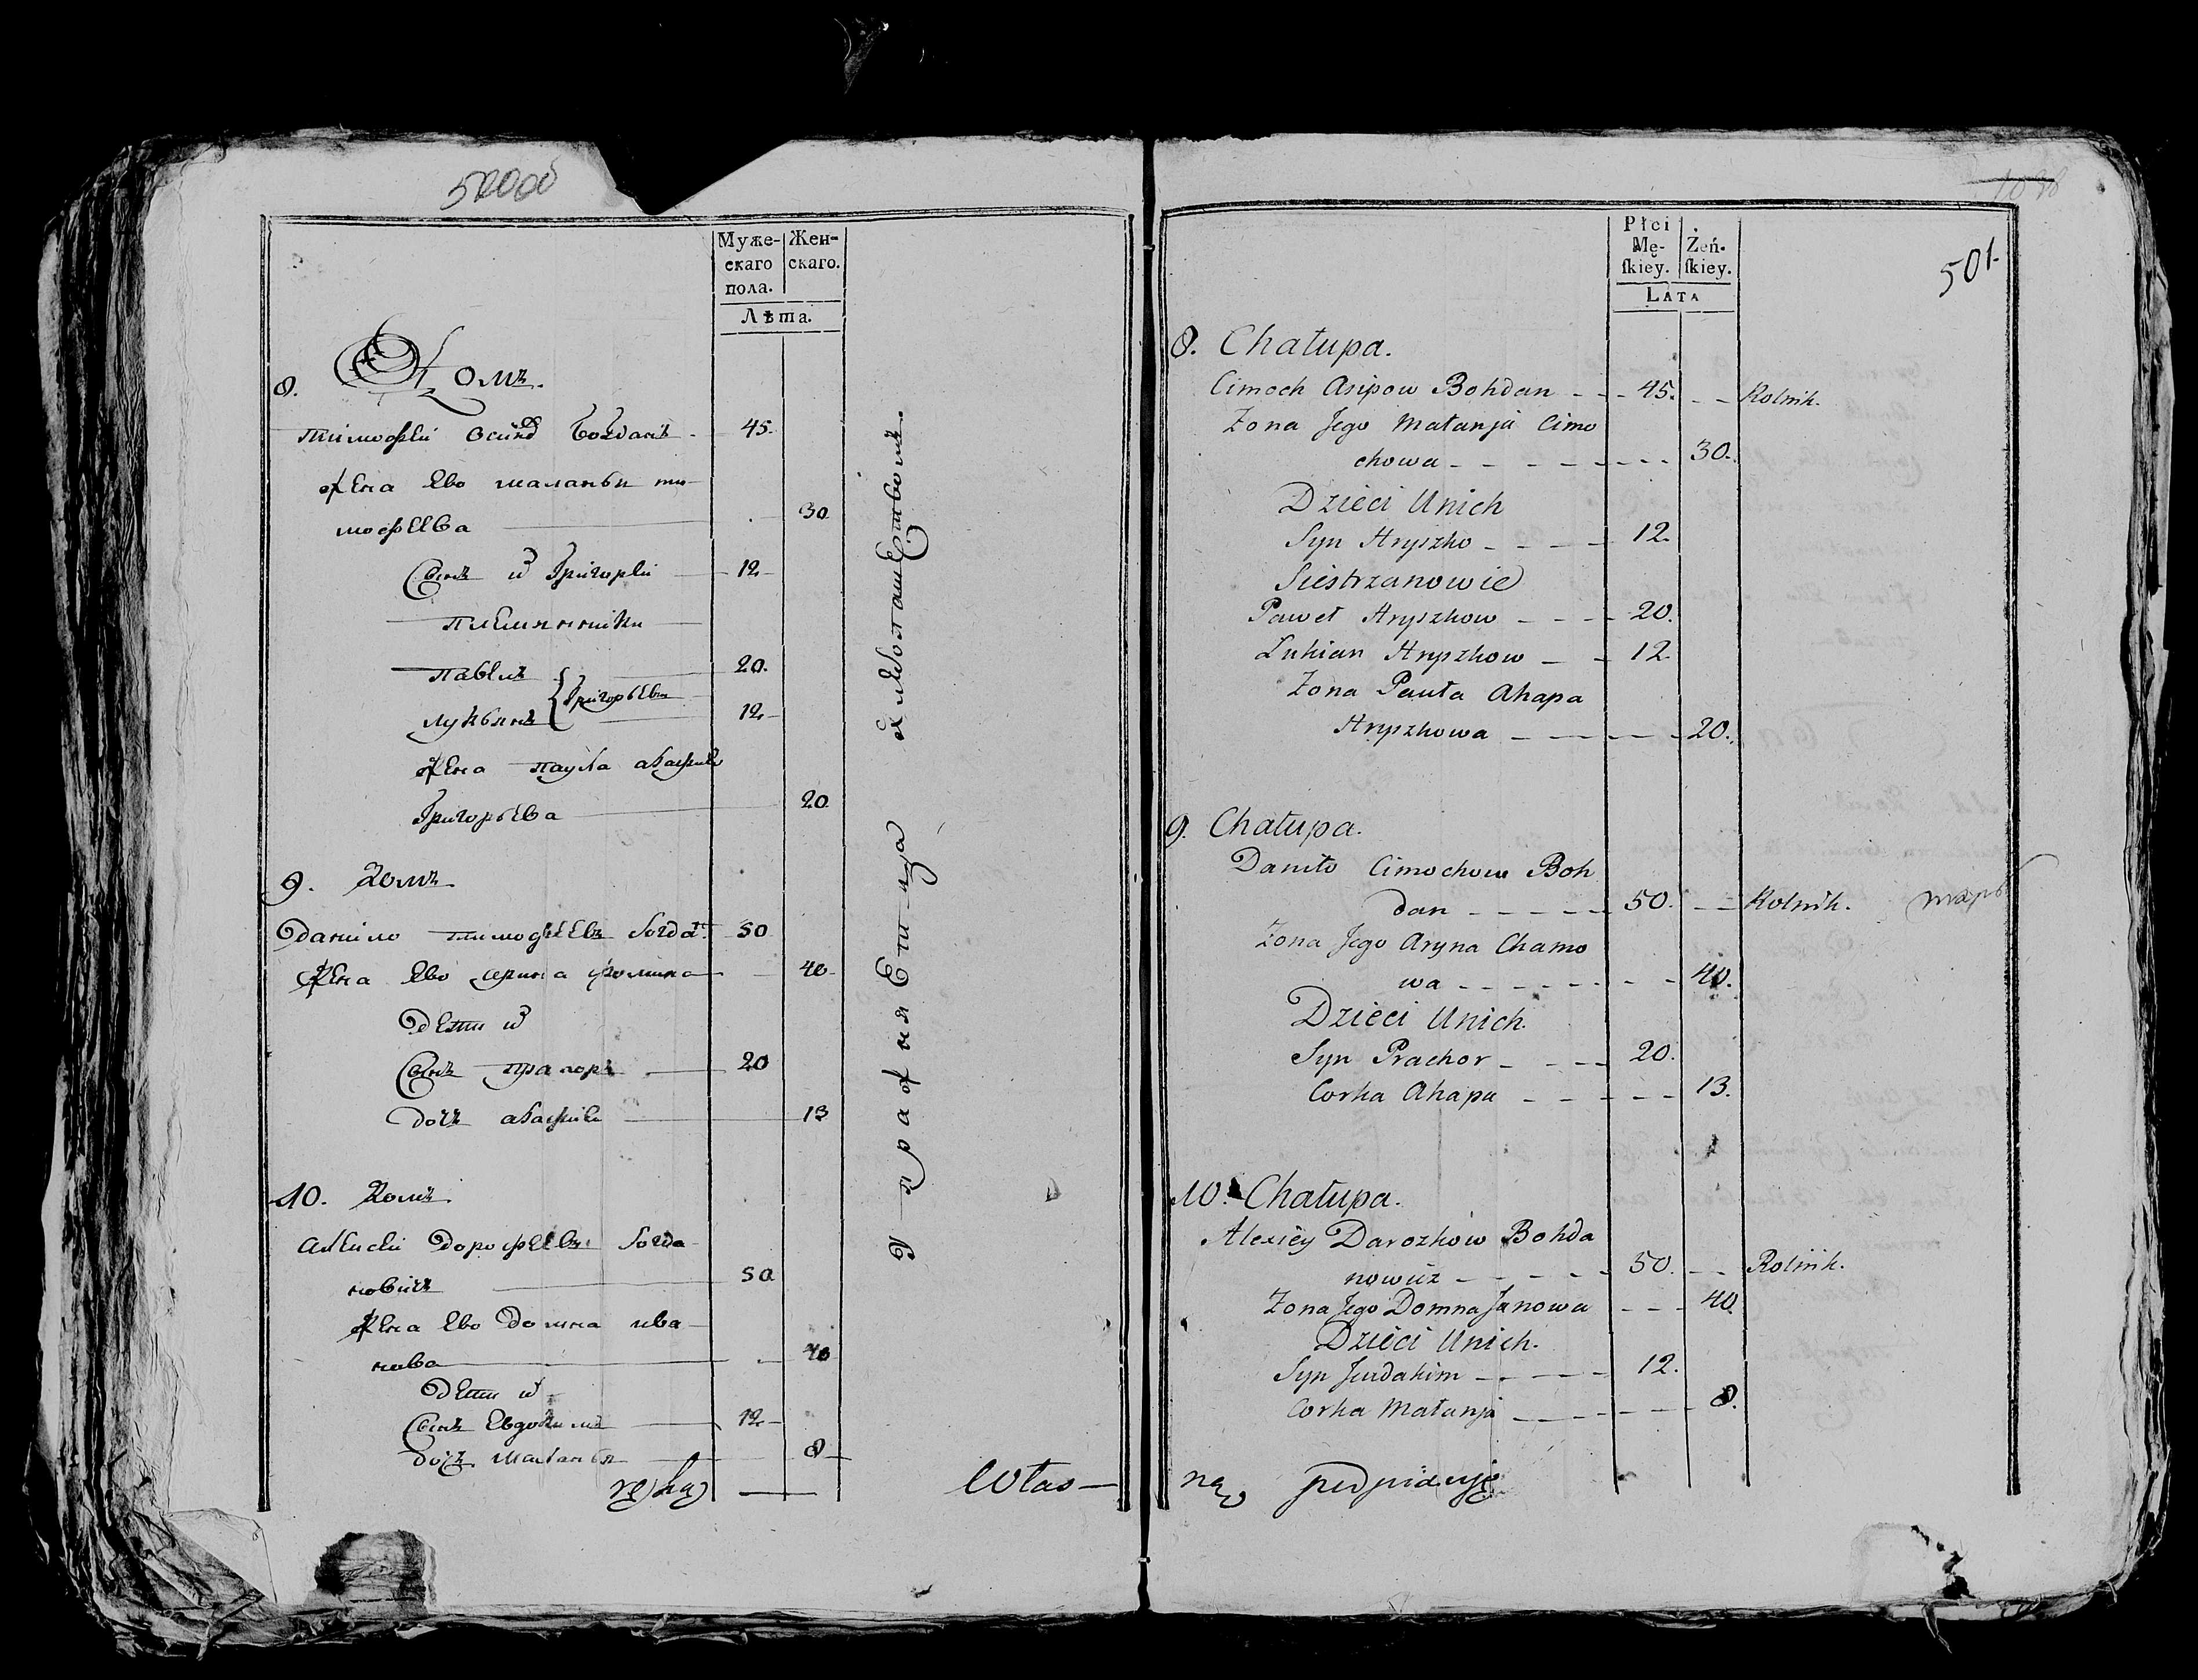 500об
Муже-
скаго
пола.
Жен-
скаго.
Лѣта.
8. Домъ.
Тимофеи Осипд Богданъ - 45.
жена Ево маланья ти-
мофеева 30
Сынъ и Григореи 12
племянники
павелъ 20.
лукьянъ Григорьевы 12
жена паула агафия
Григорьева 20
9. Домъ
Данило тимофеевъ богдан. 50
жена Ево ирина фомина 40
дети и
Сынъ прахоръ 20
дочъ агафия 13
10. Домъ.
Алексеи Дорофеевъ Богда
новичъ 50
жена Ево Домна ива-
нова 40
дети и
Сынъ Евдокимъ 12
дочъ маланья 8
ręką
Упражняется хлебопашествомъ.
Własno
Płci
Mę-
ſkiey.
Żeń-
ſkiey.
LATA
501.
8. Chałupa.
Cimoch Asipow Bohdan - - 45. - - Rolnik.
Zona Jego Małanja Cimo
chowa - - - 30.
Dzieci Unich
Syn Hryszko - - - 12.
Siestrzanowie
Paweł Hryszkow - - - 20.
Lukian Hryszkow - - 12
Zona Pauła Ahapa
Hryszkowa - - - 20.
9. Chałupa.
Daniło Cimochow Boh
dan - - - 50. - - Rolnik.
Zona Jego Aryna Chamo
wa - - - 40.
Dzieci Unich.
Syn Prachor - - - 20.
Corka Ahapa - - - 13.
10. Chałupa.
Alexiey Darozkow Bohda
nowicz - - - 50. - - Rolnik.
Zona Jego Domna Janowa - - - 40
Dzieci Unich.
Syn Jeudakim - - - 12.
Corka Małanja - - - 8.
ną podpisuję